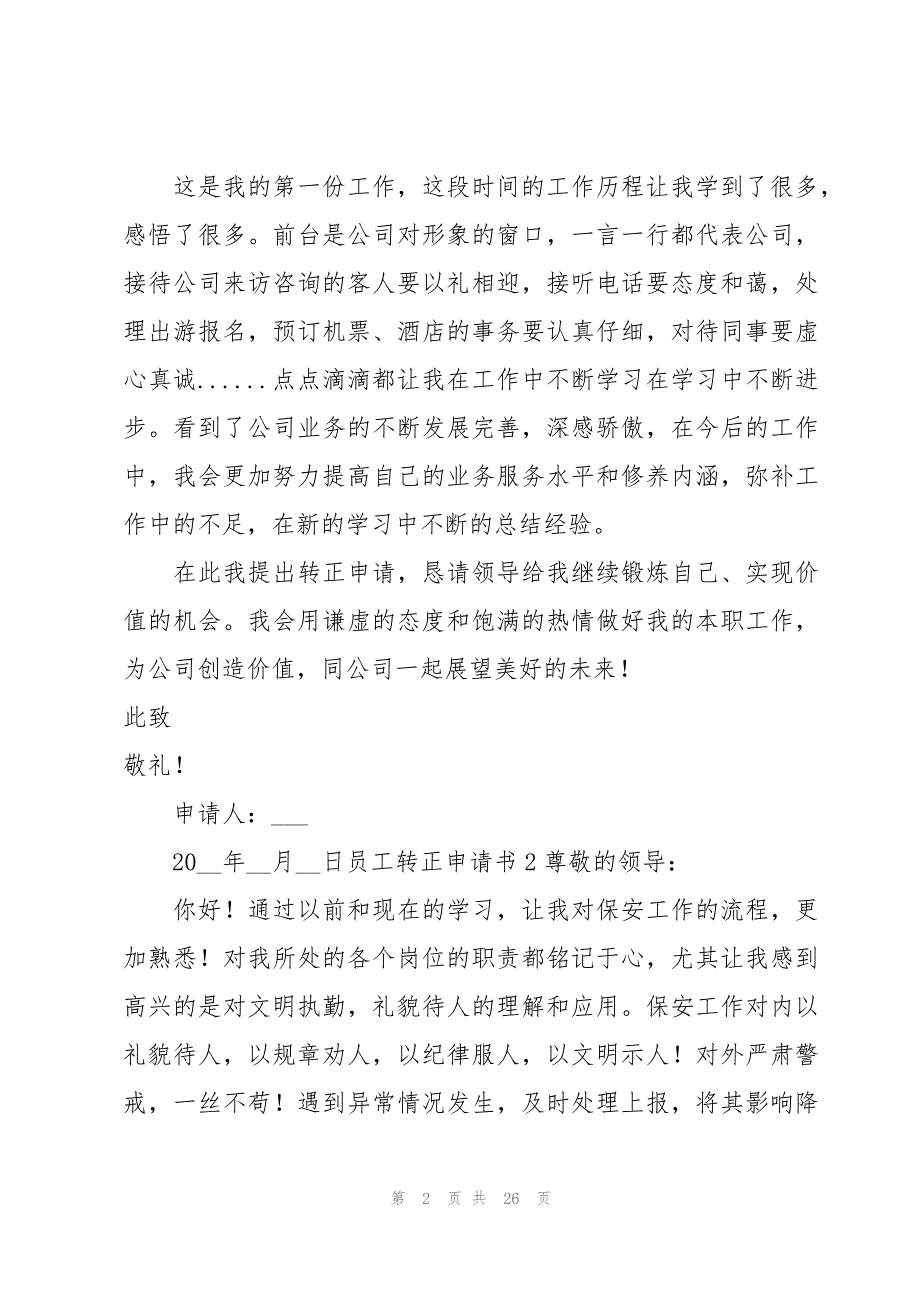 这是我的第一份工作，这段时间的工作历程让我学到了很多，
感悟了很多。前台是公司对形象的窗口，一言一行都代表公司，
接待公司来访咨询的客人要以礼相迎，接听电话要态度和蔼，处
理出游报名，预订机票、酒店的事务要认真仔细，对待同事要虚
心真诚......点点滴滴都让我在工作中不断学习在学习中不断进
步。看到了公司业务的不断发展完善，深感骄傲，在今后的工作
中，我会更加努力提高自己的业务服务水平和修养内涵，弥补工
作中的不足，在新的学习中不断的总结经验。
在此我提出转正申请，恳请领导给我继续锻炼自己、实现价
值的机会。我会用谦虚的态度和饱满的热情做好我的本职工作，
为公司创造价值，同公司一起展望美好的未来！
此致
敬礼！
申请人：___
20__年__月__日员工转正申请书2尊敬的领导：
你好！通过以前和现在的学习，让我对保安工作的流程，更
加熟悉！对我所处的各个岗位的职责都铭记于心，尤其让我感到
高兴的是对文明执勤，礼貌待人的理解和应用。保安工作对内以
礼貌待人，以规章劝人，以纪律服人，以文明示人！对外严肃警
戒，一丝不苟！遇到异常情况发生，及时处理上报，将其影响降
第 2 页 共 26 页